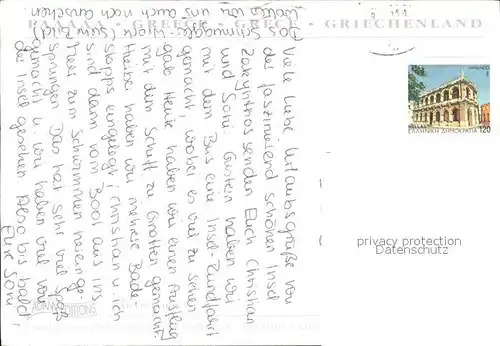 GREECE - GRÈCE - GRIECHENLAND
Das Schmuggler-Wrack (zum Bild)
wollen wir uns auch noch anschauen!
Viele liebe Urlaubsgrüße von
der faszinierend schönen Insel
Zakynthos senden Euch Christian
und Soni. Gestern haben wir
mit dem Bus eine Insel-Rundfahrt
gemacht, wobei es viel zu sehen
gab. Heute haben wir einen Ausflug
mit dem Schiff zu Grotten gemacht.
Hierbei haben wir mehrere Bade-
stopps eingelegt, Christian u. ich
sind dann vom Boot aus ins
Meer zum Schwimmen hereinge-
sprungen. Das hat sehr viel Spaß
gemacht u. wir haben viel von
der Insel gesehen. Also bis bald,
Eure Soni
ΕΛΛΗΝΙΚΗ ΔΗΜΟΚΡΑΤΙΑ 120
privacy protection
Datenschutz